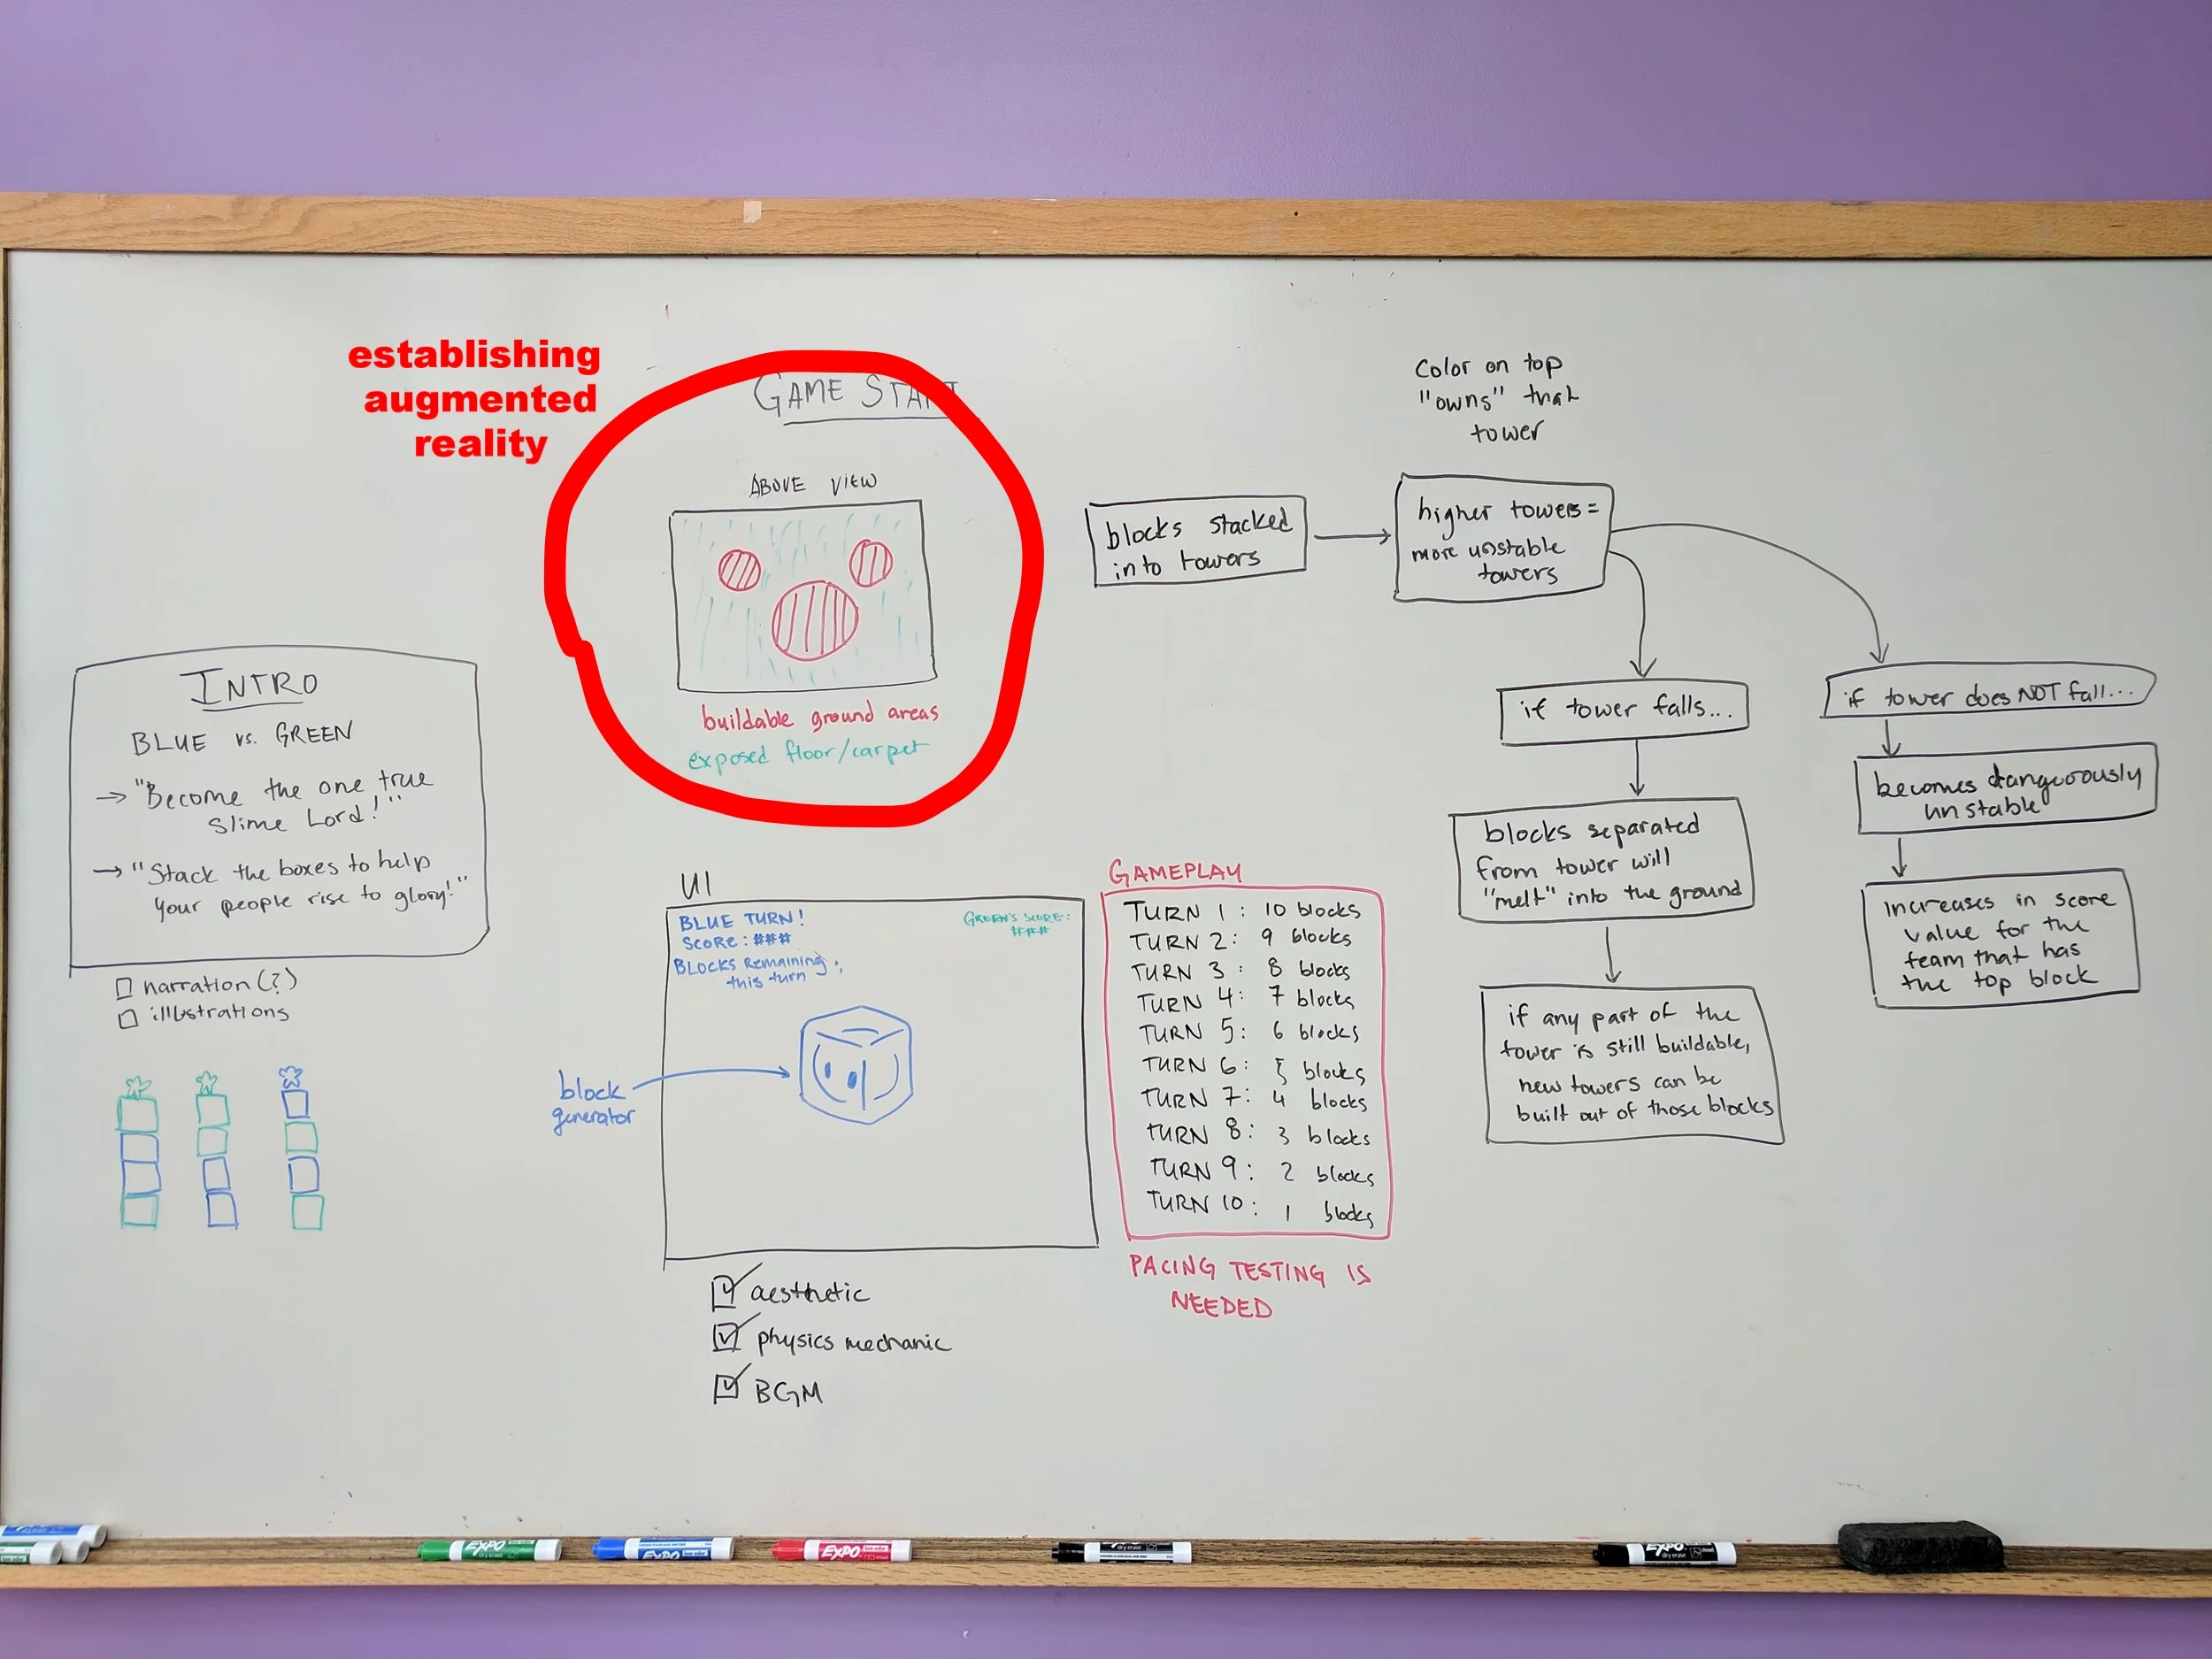 establishing
augmented
reality
GAME START
ABOVE VIEW
buildable ground areas
exposed floor/carpet
INTRO
BLUE vs. GREEN
→ "Become the one true
Slime Lord!"
→ "Stack the boxes to help
your people rise to glory!"
narration (?)
illustrations
UI
BLUE TURN!
SCORE: ###
BLOCKS REMAINING:
this turn
GREEN'S SCORE:
###
block
generator
aesthetic
physics mechanic
BGM
GAMEPLAY
TURN 1: 10 blocks
TURN 2: 9 blocks
TURN 3: 8 blocks
TURN 4: 7 blocks
TURN 5: 6 blocks
TURN 6: 5 blocks
TURN 7: 4 blocks
TURN 8: 3 blocks
TURN 9: 2 blocks
TURN 10: 1 blocks
PACING TESTING IS
NEEDED
blocks stacked
into towers
Color on top
"owns" that
tower
higher towers =
more unstable
towers
if tower falls...
blocks separated
from tower will
"melt" into the ground
if any part of the
tower is still buildable,
new towers can be
built out of those blocks
if tower does NOT fall...
becomes dangerously
unstable
increases in score
value for the
team that has
the top block
EXPO
dry erase
EXPO
EXPO
EXPO
dry erase